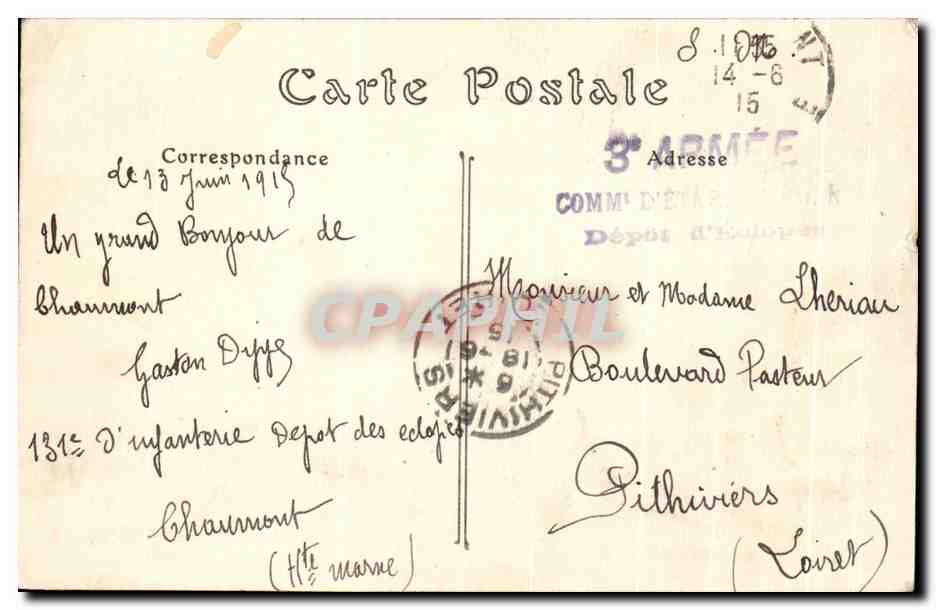 Carte Postale
Correspondance
le 13 Juin 1915
Un grand Bonjour de
Chaumont
Gaston
131e d'infanterie Depot des eclopés
Chaumont
(Hte marne)
14 -6
15
3e ARMÉE
Adresse
COMMt
Dépôt d'Eclopés
Monsieur et Madame Lheriau
Boulevard Pasteur
Pithiviers
(Loiret)
PITHIVIERS
CPAPHIL